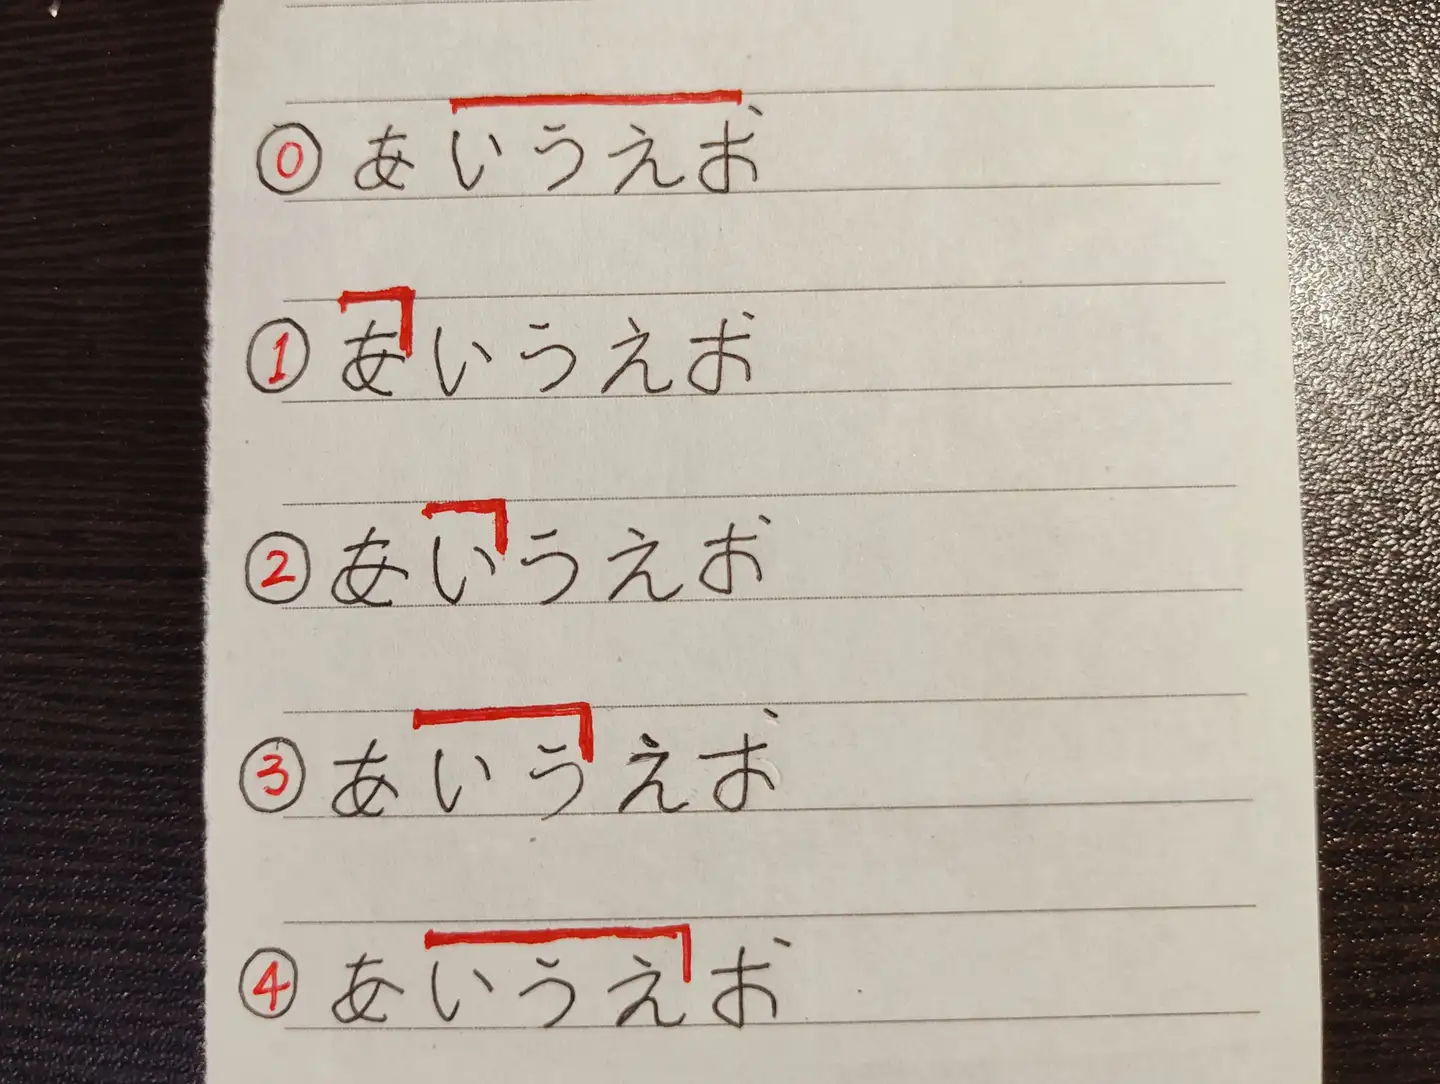 ⓪ あいうえお
① あいうえお
② あいうえお
③ あいうえお
④ あいうえお